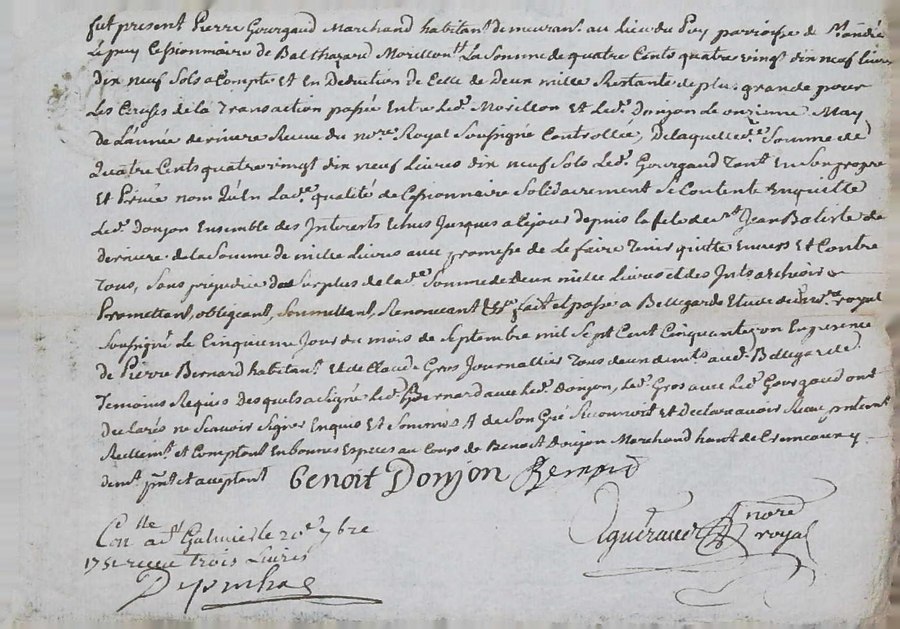 fut present Pierre Gourgaud Marchand habitant demeurant au Lieu du Puy parroisse de St. andré
Le puy Cessionnaire de Balthazard Morillon La Somme de quatre Cents quatre vingt dix neuf livres
dix neuf Sols a Compte Et En Deduction de Celle de Deux mille Restante de plus grande pour
Les Causes de la Transaction passée Entre Led. Morillon Et Led. Donjon le onzieme May
de L'année derniere Receue du nore. Royal Soussigné Controllée, De laquelle de. Somme de
Quatre Cents quatre vingt dix neuf Livres dix neuf Sols Led. Gourgaud Tant En Son propre
Et Privé nom Qu'En La de. qualité de Cessionnaire Solidairement Se Contente Enquitte
Led. Donjon Ensemble des Interests Echus Jusques a Cejour depuis la fete de St Jean Batiste de
derniere de la Somme de mille Livres avec promesse de Le faire Tenir quitte Envers Et Contre
Tous, Sans prejudice du Surplus de la de. Somme de Deux mille Livres et des Ints.
Promettant, obligeant, Soumettant, Renonceant fait et passé a Bellegarde Etude du nore. royal
Soussigné Le Cinquieme Jour du mois de Septembre mil Sept Cent Cinquante En presence
de Pierre Bernard habitant Et de Claude Gros Journallier Tous deux demts. aud. Bellegarde
Temoins Requis Desquels a Signé Led. Bernard avec Led. Donjon, Led. Gros avec Led. Gourgaud ont
declarés ne Scavoir Signer Enquis Et Sommés Son Gré Reconnoit et Declare avoir Receu
Reellemt. et Comptant En bonnes Especes au Cours de Benoit Donjon Marchand hant. de
demt. pnt. et acceptant Benoit Donjon Bernard
Conlle a St Galmier le 20e 7bre nore
1751 receu trois Livres royal